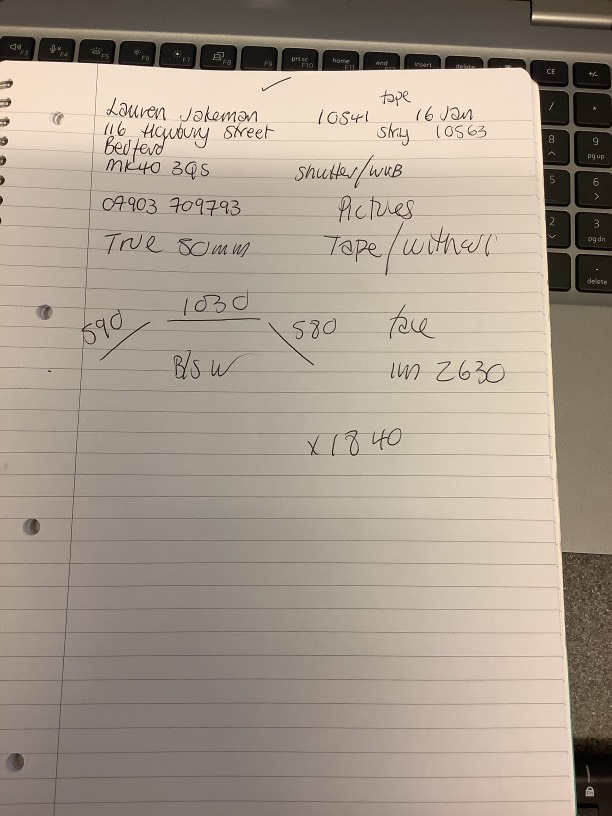 tape
Lauren Jakeman 10541 16 Jan
116 Hawbury Street stny 10563
Bedford
MK40 3QS shutter/web
07903 709793 Pictures
True 50mm Tape/without
590 1030 580 face
B/S W un 2630
x 1840
F3
F4
F5
F6
F7
F8
F9
prt sc
F10
home
F11
end
insert
delete
CE
+/-
/
*
8
9
pg up
5
6
2
3
pg dn
.
delete